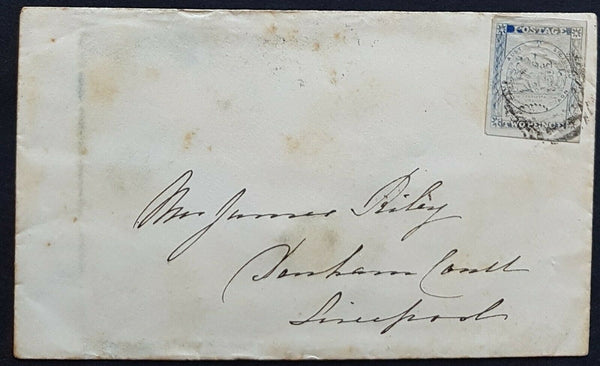 POSTAGE
TWO PENCE
Mrs James Riley
Denham Court
Liverpool